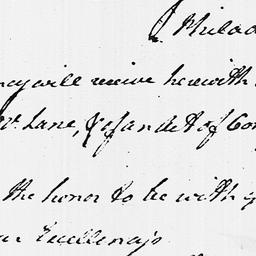 Philad
ncy will receive herewith
Mr. Lane, & of an Act of Con
the honor to be with g
ur Excellency's